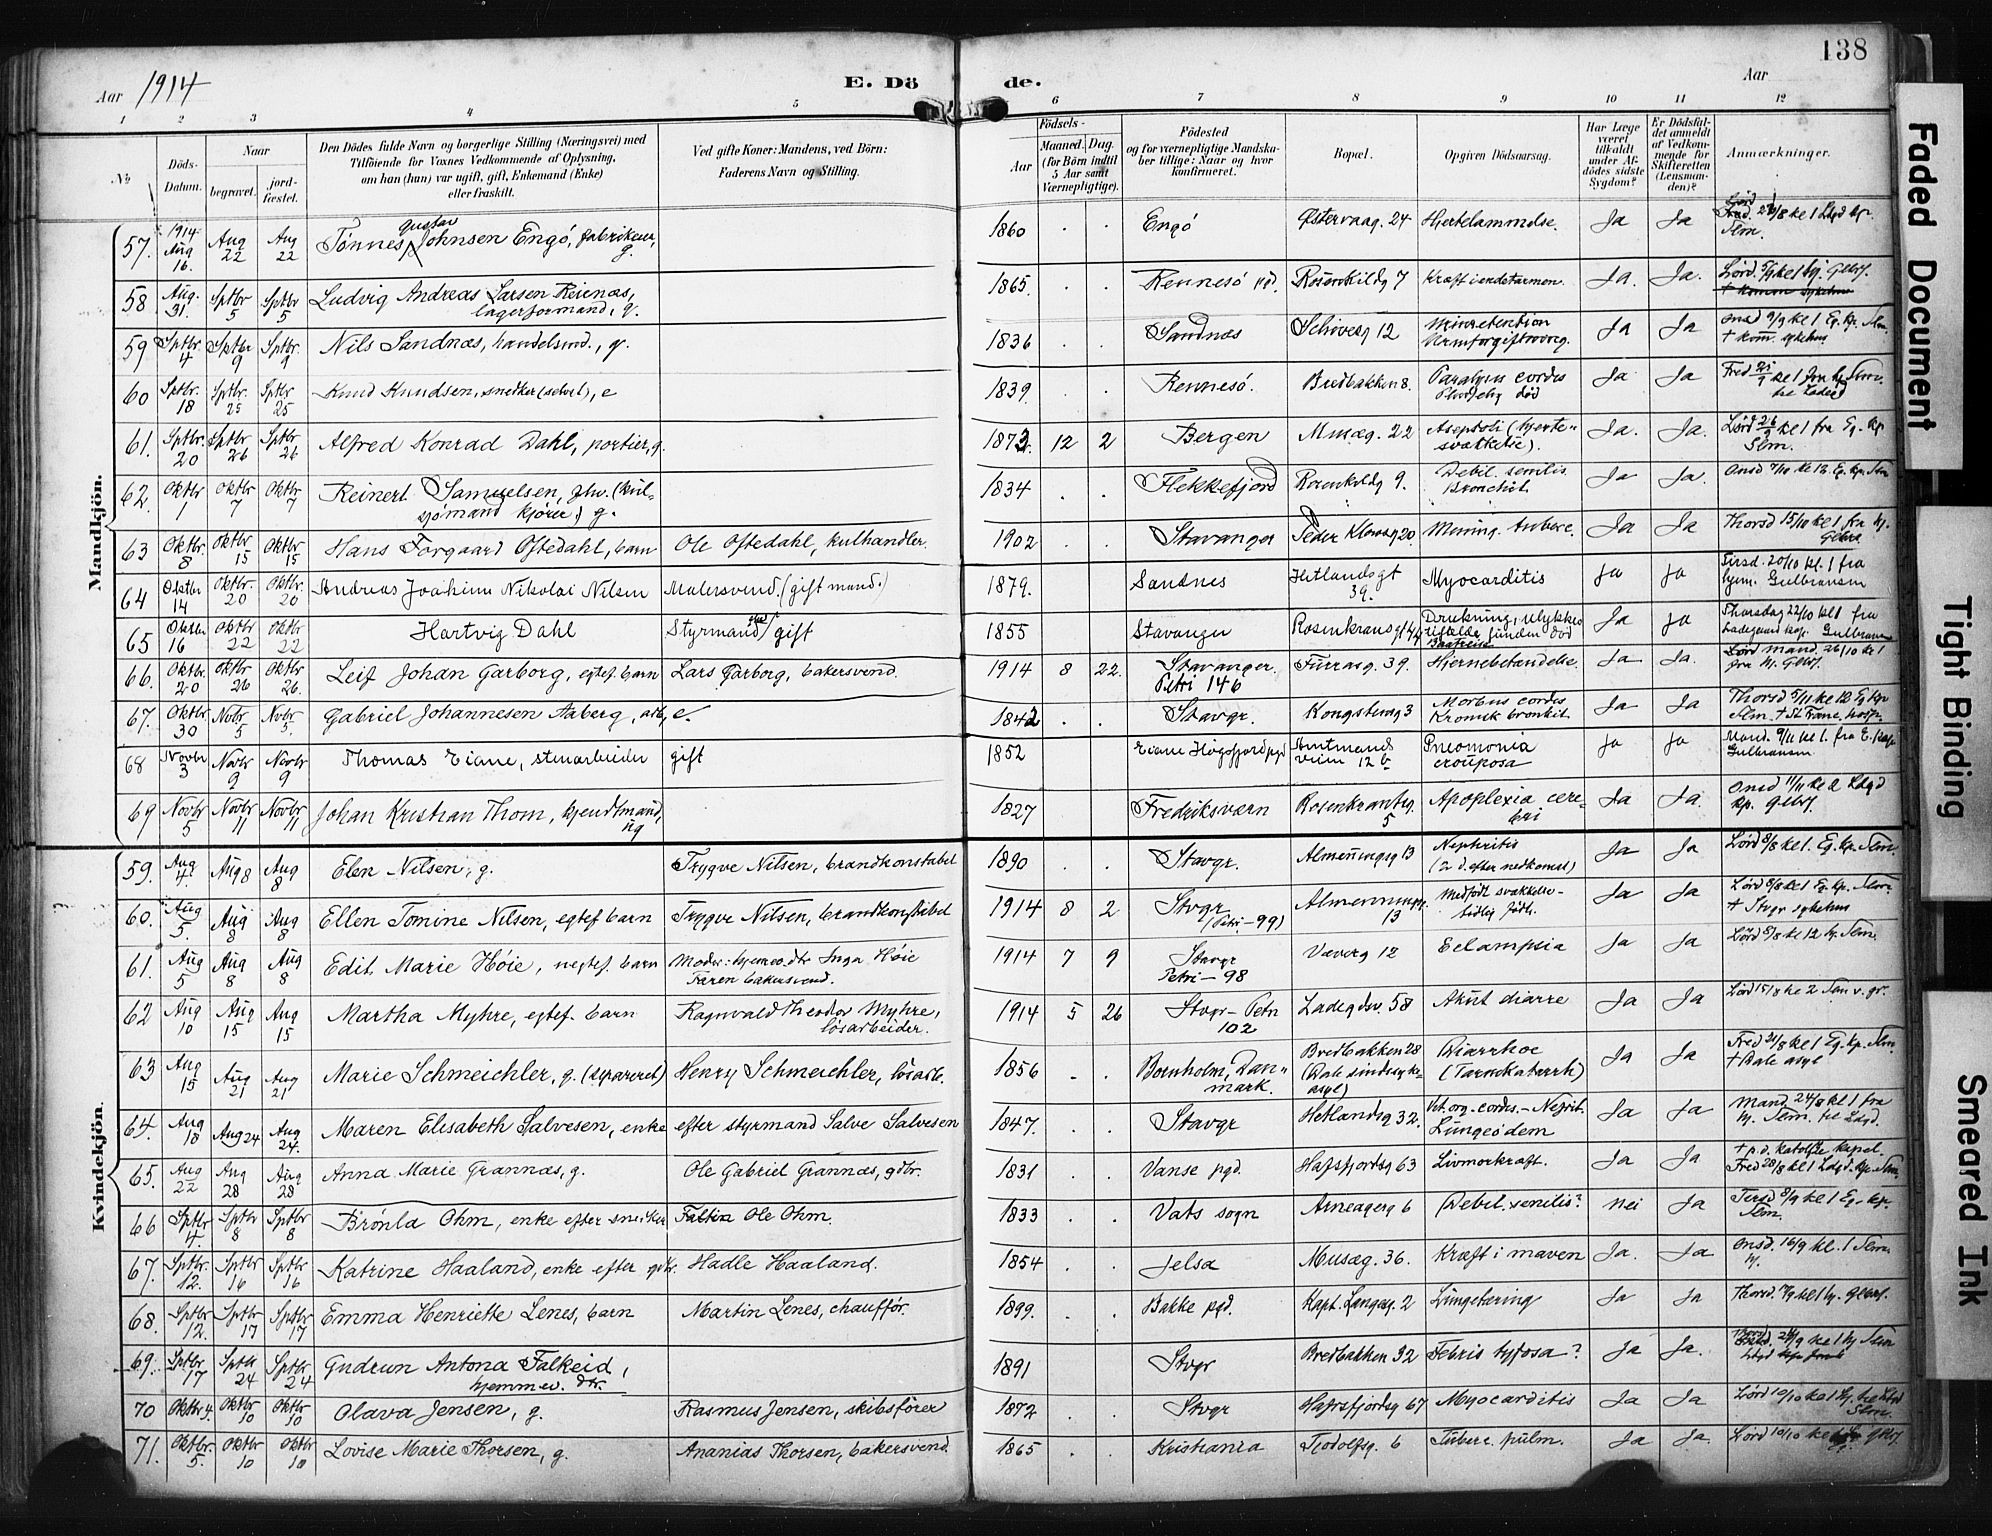 138
Aar 1914
E. Dö de.
Aar
1 2 3 4 5 6 7 8 9 10 11 12
№
Döds-Datum.
Naar
begravet.
jord-fæstet.
Den Dödes fulde Navn og borgerlige Stilling (Næringsvei) med
Tilföiende for Voxnes Vedkommende af Oplysning,
om han (hun) var ugift, gift, Enkemand (Enke)
eller fraskilt.
Ved gifte Koner: Mandens, ved Börn:
Faderens Navn og Stilling.
Födsels-
Aar
Maaned. Dag.
(for Börn indtil
5 Aar samt
Værnepligtige).
Födested
og for værnepligtige Mandska-
ber tillige: Naar og hvor
konfirmeret.
Bopæl.
Opgiven Dödsaarsag.
Har Læge
været
tilkaldt
under Af-
dödes sidste
Sygdom?
Er Dödsfal-
det anmeldt
af Vedkom-
mende for
Skifteretten
(Lensman-
den)?
Anmærkninger.
Mandkjön.
57. 1914 Aug 16. Aug 22 Aug 22 Tønnes Gustav Johnsen Engö, fabrikeier, g. 1860 Engö Østervaag. 24 Hjertelammelse. Ja Ja
58 Aug. 31. Sptbr 5 Sptbr 5 Ludvig Andreas Larsen Reienæs, lagerformand, g. 1865. Rennesö pgd. Rosenkildg 7 Kræft i endetarmen. Ja. Ja.
59 Sptbr. 4 Sptbr 9 Sptbr. 9 Nils Sandnæs, handelsmd., g. 1836 Sandnæs Schivesg 12 Urinretention Urinforgiftning. Ja Ja Onsd 9/9 kl 1 Eg. kp. Slm † kom. sykehus
60 Sptbr. 18 Sptbr. 25 Sptbr 25 Knud Knudsen, snedker (selvst), e 1839. Rennesö. Bredbakken 8. Paralysis cordis Pludselig död Ja Ja
61. Sptbr. 20 Sptbr 26 Sptbr. 26 Alfred Konrad Dahl, portier, g. 1873. 12 2 Bergen Musæg. 22 Ja. Ja. Lörd 26/9 kl 1 fra Eg. kp Slm.
62. Oktbr 1 Oktbr 7 Oktbr. 7 Reinert Samuelsen, 1834 Flekkefjord Rosenkildg 9. Debil. senilis. Bronchit. Ja Ja. Onsd 7/10 kl 12 Eg. kp. Slm
63 Oktbr. 8 Oktbr. 15 Oktbr. 15 Hans Torgaard Oftedahl, barn Ole Oftedahl, kulhandler. 1902 Stavanger Peder Klowsg 20. Mening. tuberc. Ja Ja Thorsd 15/10 kl 1 fra hj. Glbrs.
64 Oktbr 14 Oktbr. 20 Oktbr. 20 Andreas Joachim Nikolai Nilsen Malersvend. (gift mand.) 1879. Sandnes Hetlandsgt 39. Myocarditis ja ja Tirsd. 20/10 kl. 1 fra hjem. Gulbransen
65 Oktbr 16 Oktbr 22 Oktbr 22 Hartvig Dahl Styrmand gift 1855 Stavanger Drukning, ulykkes tilfælde, funden död Ja ja Thorsdag 22/10 kl 1 fra Ladegaard kap. Gulbransen
66. Oktbr 20 Oktbr 26 Oktbr 26. Leif Johan Garborg, egtef. barn Lars Garborg, bakersvend. 1914 8 22. Stavanger. Petri 146 Furrasg. 39. Hjernebetændelse. Ja Ja. Mand. 26/10 kl 1 fra hj. Glbrs.
67. Oktbr. 30 Novbr 5 Novbr. 5. Gabriel Johannesen Aaberg, arb, e. 1842 Stavgr. Kongsteing 3 Morbus cordis Kronisk bronkit. Ja Ja Thorsd 5/11 kl 12 Eg kp Slm † St Franc. hosp.
68 Novbr 3 Novbr 9 Novbr 9 Thomas Eiane, stenarbeider gift 1852 Eiane Høgsfjord pgd Amtmandsveien 12 b Pneumonia crouposa ja ja Mand. 9/11 kl 1. fra E. kap. Gulbransen
69 Novbr 5 Novbr 11 Novbr 11 Johan Kristian Thom, ug 1827 Fredriksværn Rosenkrantsg. 5 Apoplexia cerebri Ja Ja. Onsd 11/11 kl 2 Ldgd kp. Glbrs.
Kvindekjön.
59. Aug 4. Aug 8 Aug 8 Elen Nilsen, g. Trygve Nilsen, brandkonstabel 1890 Stavgr. Almenningsg 13 Nephritis (2 d. efter nedkomst) Ja Ja Lörd 8/8 kl 1. Eg. kp. Slm.
60. Aug 5. Aug 8 Aug 8 Ellen Tomine Nilsen, egtef barn Trygve Nilsen, brandkonstabel 1914 8 2 Stvgr (Petri-99) Almenningsg. 13 Medfödt svækkelse- tidlig födt. Ja Ja Lörd 8/8 kl 1 Eg. kp. Slm † Stvgr sykehus
61. Aug 5 Aug 8 Aug 8 Edit Marie Höie, uegtef. barn Moder: hjemv. dtr Inga Höie Faren bakersvend. 1914 7 9 Stavgr Petri-98 Væverg 12 Eclampsia Ja Ja Lörd 8/8 kl 12 hj. Slm.
62 Aug 10 Aug 15 Aug 15 Martha Myhre, egtef. barn Ragnvald Theodor Myhre, lösarbeider. 1914 5 26 Stvgr-Petri 102 Ladegdsv. 58 Akut diarre Ja Ja Lörd 15/8 kl 2 Slm v. gr.
63 Aug 15 Aug 21 Aug 21 Marie Schmeichler, g. (separeret) Henry Schmeichler, lösarb. 1856 Bornholm, Danmark. Bredbakken 28 (Dale sindssykeasyl) Diarrhoe (Tarmkatarrh) Ja Ja Fred 21/8 kl 1 Eg. kp. Slm. † Dale asyl
64. Aug 18 Aug 24 Aug 24. Maren Elisabeth Salvesen, enke efter styrmand Salve Salvesen 1847. Stavgr Hetlandsg 32. Vit. org. cordis.-Nefrit. Lungeödem Ja Ja Mand. 24/8 kl 1 fra hj. Slm. til Ldgd.
65. Aug 22 Aug 28 Aug 28 Anna Marie Grannæs, g. Ole Gabriel Grannæs, gdbr. 1831 Vanse pgd. Hafsfjordsg 63 Livmorkræft. Ja Ja Fred 28/8 kl 1 Ldgd. kp. Slm.
66 Sptbr 4. Sptbr 8 Sptbr 8 Brönla Ohm, enke efter snekker Ole Ohm. 1833 Vats sogn Arneagerg 6 Debil. senilis? Nei Ja Tirsd 8/9 kl 1 Eg. kp. Slm.
67. Sptbr. 12. Sptbr 16 Sptbr 16 Katrine Haaland, enke efter gdbr. Hadle Haaland. 1854 Jelsa Musæg. 36. Kræft i maven Ja. Ja Onsd. 16/9 kl. 1 Slm. hj.
68. Sptbr 12. Sptbr 17 Sptbr 17 Emma Henriette Lenes, barn Martin Lenes, chaufför. 1899. Bakke pgd. Kapt. Langesg. 2 Lungetæring Ja Ja Thorsd. 17/9 kl 1 hj. Glbrs.
69. Sptbr 17 Sptbr 24 Sptbr 24 Gudrun Antona Falkeid, hjemmev. dtr. 1891 Stvgr Bredbakken 32 Febris tyfosa? Ja Ja.
70 Oktbr 4. Oktbr 10 Oktbr 10 Olava Jensen, g. Rasmus Jensen, skibsförer 1872 Stvgr Hafrsfjordsg 67 Myocarditis Ja Ja
71. Oktbr. 5. Oktbr 10 Oktbr 10 Lovise Marie Thorsen, g. Ananias Thorsen, bakersvend. 1865 Kristiania Tjodolfsg. 6 Tuberc. pulm. Ja Ja
Faded Document
Tight Binding
Smeared Ink